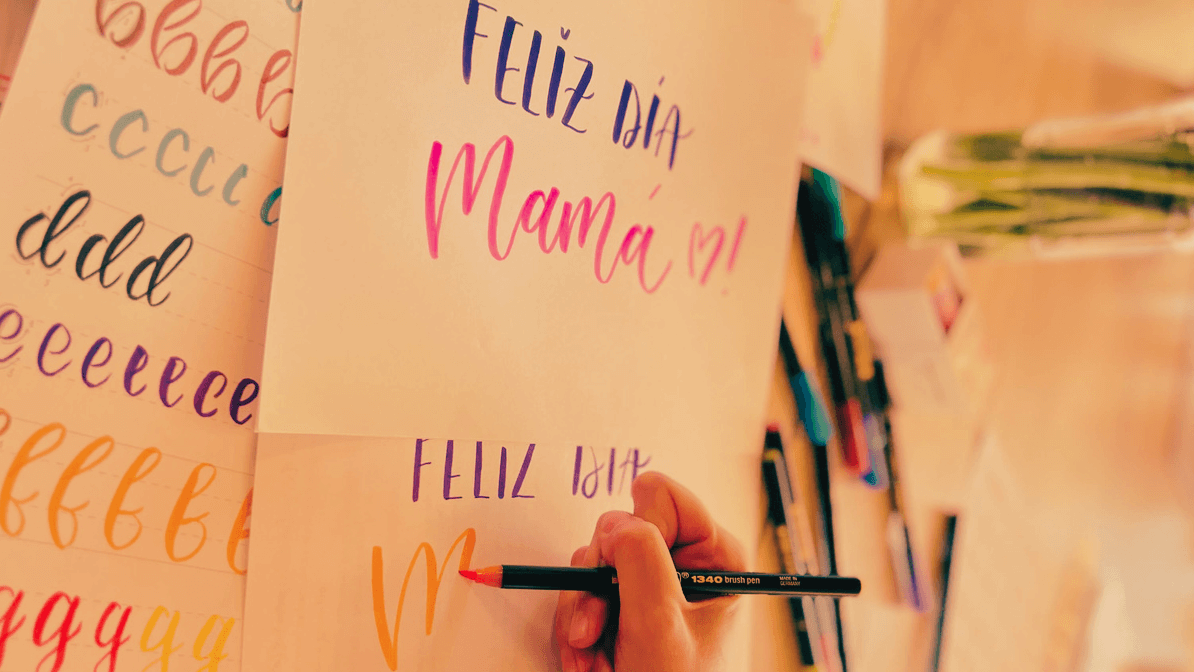 bbbb
cccccc
ddd
eeeeece
fffff
gggggg
FELIZ DÍA
Mamá ♡!
FELIZ DÍA
M
1340 brush pen MADE IN GERMANY